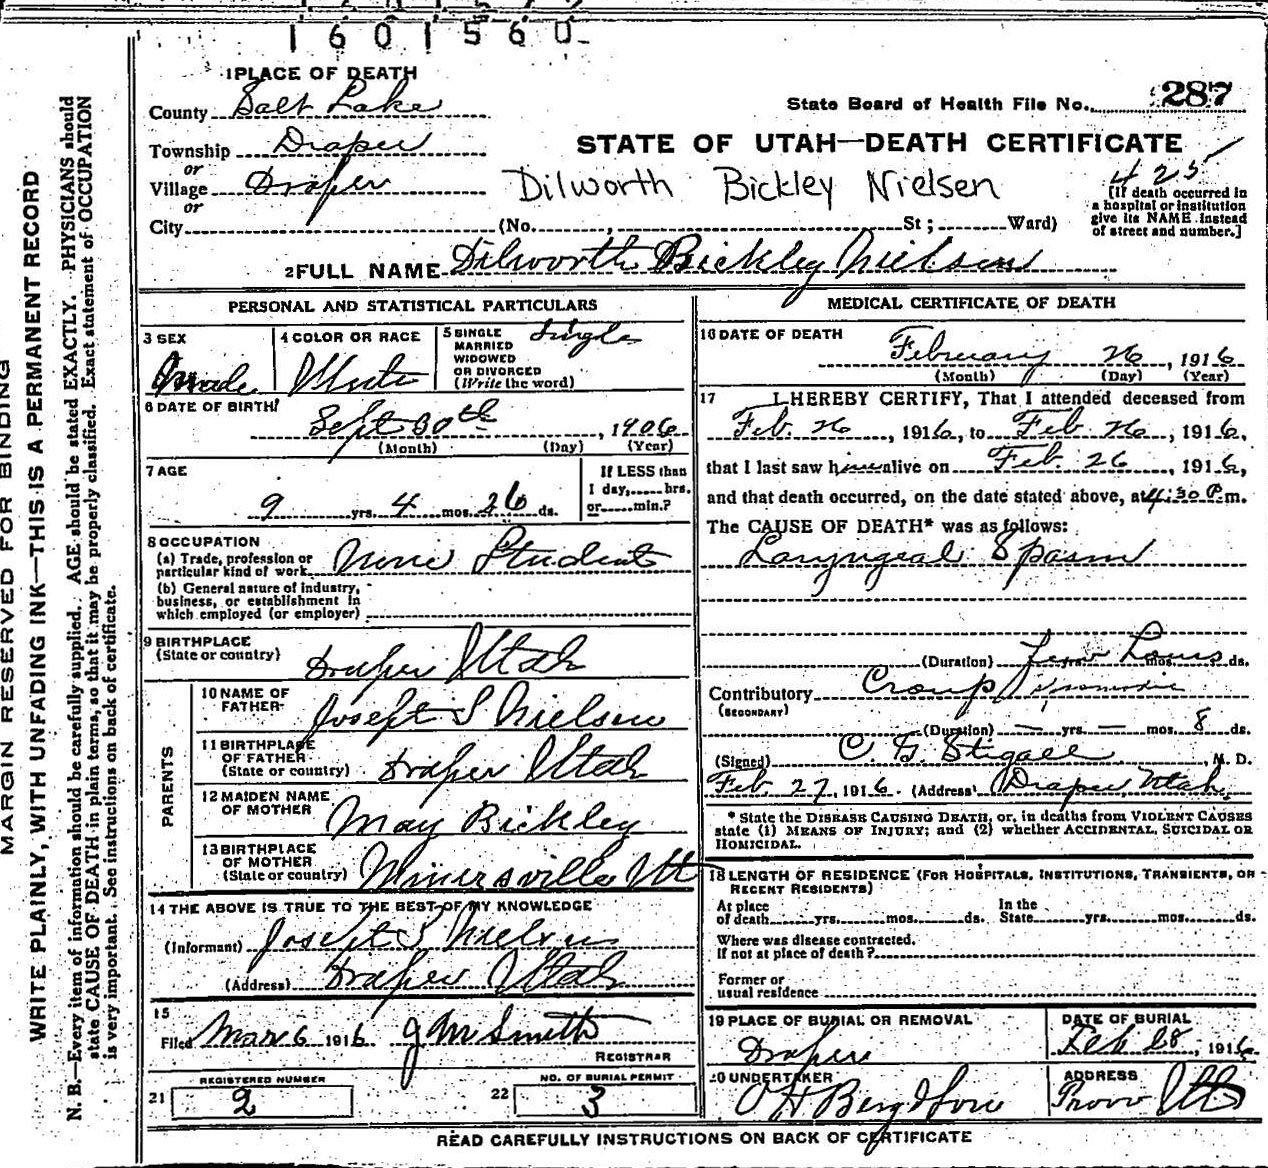 1601560
1 PLACE OF DEATH
County Salt Lake
State Board of Health File No. 287
Township Draper
or
STATE OF UTAH—DEATH CERTIFICATE
Village Draper
or
Dilworth Bickley Nielsen
425
[If death occurred in a hospital or institution give its NAME instead of street and number.]
City (No. , St; Ward)
2 FULL NAME Dilworth Bickley Nielsen
PERSONAL AND STATISTICAL PARTICULARS
3 SEX
Male
4 COLOR OR RACE
White
5 SINGLE
MARRIED
WIDOWED
OR DIVORCED
(Write the word)
Single
6 DATE OF BIRTH
Sept 30th, 1906
(Month) (Day) (Year)
7 AGE
9 yrs. 4 mos. 26 ds.
If LESS than
1 day, hrs.
or min.?
8 OCCUPATION
(a) Trade, profession or
particular kind of work None Student
(b) General nature of industry,
business, or establishment in
which employed (or employer)
9 BIRTHPLACE
(State or country) Draper Utah
PARENTS
10 NAME OF
FATHER Joseph S Nielsen
11 BIRTHPLACE
OF FATHER
(State or country) Draper Utah
12 MAIDEN NAME
OF MOTHER May Bickley
13 BIRTHPLACE
OF MOTHER
(State or country) Minersville Ut
14 THE ABOVE IS TRUE TO THE BEST OF MY KNOWLEDGE
(Informant) Joseph S Nielsen
(Address) Draper Utah
15
Filed Mar 6 1916 J M Smith
REGISTRAR
REGISTERED NUMBER
21 2
NO. OF BURIAL PERMIT
22 3
MEDICAL CERTIFICATE OF DEATH
16 DATE OF DEATH
February 26, 1916
(Month) (Day) (Year)
17 I HEREBY CERTIFY, That I attended deceased from
Feb. 26, 1916, to Feb 26, 1916,
that I last saw him alive on Feb. 26, 1916,
and that death occurred, on the date stated above, at 4:30 P.m.
The CAUSE OF DEATH* was as follows:
Laryngeal Spasm
(Duration) yrs. mos. ds.
Contributory Croup
(SECONDARY)
(Duration) — yrs. — mos. 8 ds.
(Signed) C. G. Stigall, M. D.
Feb 27, 1916. (Address) Draper, Utah.
* State the DISEASE CAUSING DEATH, or, in deaths from VIOLENT CAUSES
state (1) MEANS OF INJURY; and (2) whether ACCIDENTAL, SUICIDAL OR
HOMICIDAL.
18 LENGTH OF RESIDENCE (FOR HOSPITALS, INSTITUTIONS, TRANSIENTS, OR
RECENT RESIDENTS)
At place
of death yrs. mos. ds.
In the
State yrs. mos. ds.
Where was disease contracted.
If not at place of death?
Former or
usual residence
19 PLACE OF BURIAL OR REMOVAL
Draper
DATE OF BURIAL
Feb 28, 1916
20 UNDERTAKER
ADDRESS
Provo Utah
READ CAREFULLY INSTRUCTIONS ON BACK OF CERTIFICATE
MARGIN RESERVED FOR BINDING
WRITE PLAINLY, WITH UNFADING INK—THIS IS A PERMANENT RECORD
N. B.—Every item of information should be carefully supplied. AGE should be stated EXACTLY. PHYSICIANS should
state CAUSE OF DEATH in plain terms, so that it may be properly classified. Exact statement of OCCUPATION
is very important. See instructions on back of certificate.